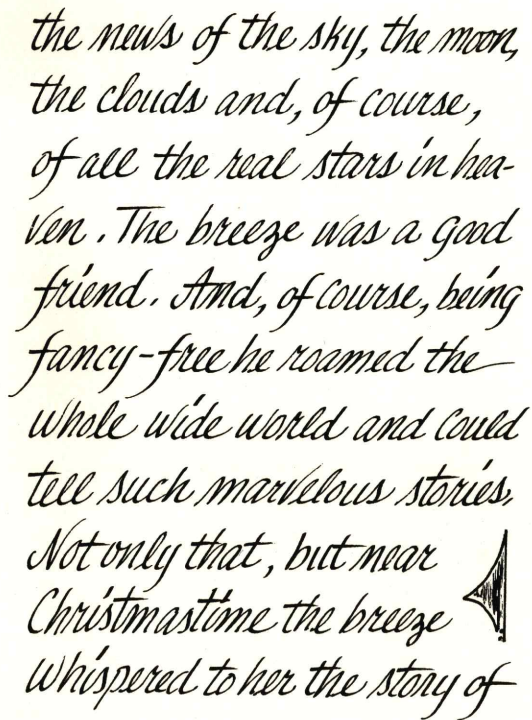 the news of the sky, the moon,
the clouds and, of course,
of all the real stars in hea-
ven. The breeze was a good
friend. And, of course, being
fancy-free he roamed the
whole wide world and could
tell such marvelous stories.
Not only that, but near
Christmastime the breeze
whispered to her the story of